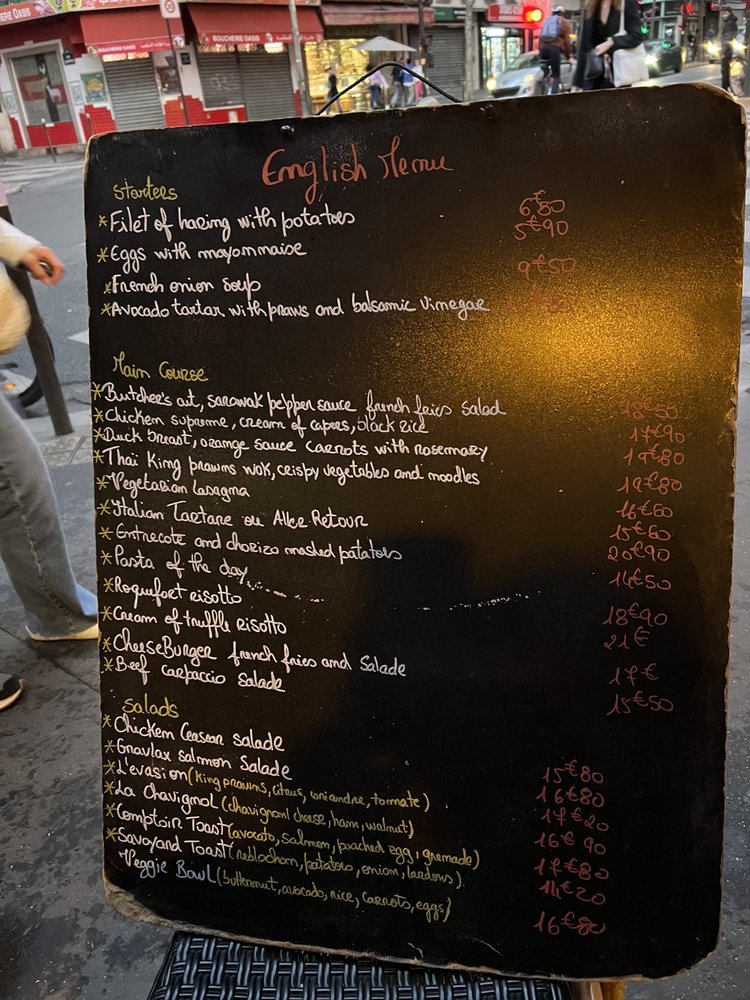 BOUCHERIE OASIS
BOUCHERIE OASIS
English Menu
Starters
*Filet of haring with potatoes 6€80
*Eggs with mayonnaise 5€90
*French onion soup 9€50
*Avocado tartar with praws and balsamic vinegar
Main Course
*Butcher's cut, sarawak pepper sauce french fries Salad 18€50
*Chicken supreme, cream of capers, black rice 17€90
*Duck breast, orange sauce carrots with rosemary 19€80
*Thaï King prawns wok, crispy vegetables and noodles 19€80
*Vegetarian lasagna 16€60
*Italian Tartare ou Aller Retour 15€60
*Entrecote and chorizo mashed potatoes 20€90
*Pasta of the day 14€50
*Roquefort risotto 18€90
*Cream of truffle risotto 21€
*CheeseBurger french fries and Salade 17€
*Beef carpaccio salade 15€50
Salads
*Chicken Ceasar salade 15€80
*Gravlax salmon Salade 16€80
*L'evasion (King prawns, citrus, coriandre, tomate) 17€20
*La Chavignol (chavignonl cheese, ham, walnut) 16€90
*Comptoir Toast (avocato, salmon, poached egg, grenade) 17€80
*Savoyard Toast (reblochorn, potatoes, onion, lardons) 14€20
Veggie Bowl (butternut, avocado, rice, carrots, eggs) 16€80